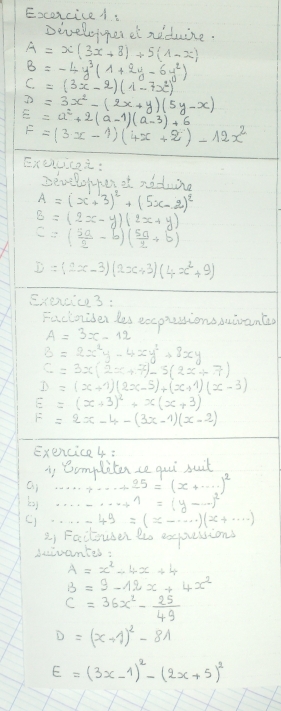 Exercice 1 :
Développer et réduire.
A = x(3x+8)+5(1-x)
B = -4y³(1+2y-6y²)
C = (3x-2)(1-7x²)
D = 3x² - (2x+y)(5y-x)
E = a² + 2(a-1)(a-3)+6
F = (3x-1)(4x+2) - 12x²
Exercice 2 :
Développer et réduire
A = (x+3)² + (5x-2)²
B = (2x-y)(2x+y)
C = (5a/2 - b)(5a/2 + b)
D = (2x-3)(2x+3)(4x²+9)
Exercice 3 :
Factoriser les expressions suivantes
A = 3x - 12
B = 2x²y - 4xy² + 8xy
C = 3x(2x+7) - 5(2x+7)
D = (x+1)(2x-5)+(x+1)(x-3)
E = (x+3)² + x(x+3)
F = 2x-4-(3x-1)(x-2)
Exercice 4 :
1) Complèter ce qui suit
a) ..... + ..... + 25 = (x+....)²
b) ..... - .... + 1 = (y-...)²
c) ..... - 49 = (x-.....)(x+....)
2) Factoriser les expressions
suivantes :
A = x² + 4x + 4
B = 9 - 12x + 4x²
C = 36x² - 25/49
D = (x+1)² - 81
E = (3x-1)² - (2x+5)²